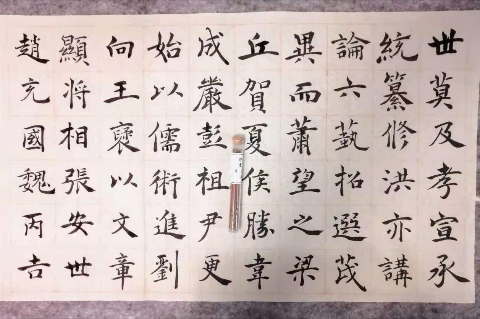 世莫及孝宣承
統纂修洪亦講
論六藝招選茂
異而蕭望之梁
丘賀夏侯勝韋
成嚴彭祖尹更
始以儒術進劉
向王褒以文章
顯将相張安世
趙充國魏丙吉